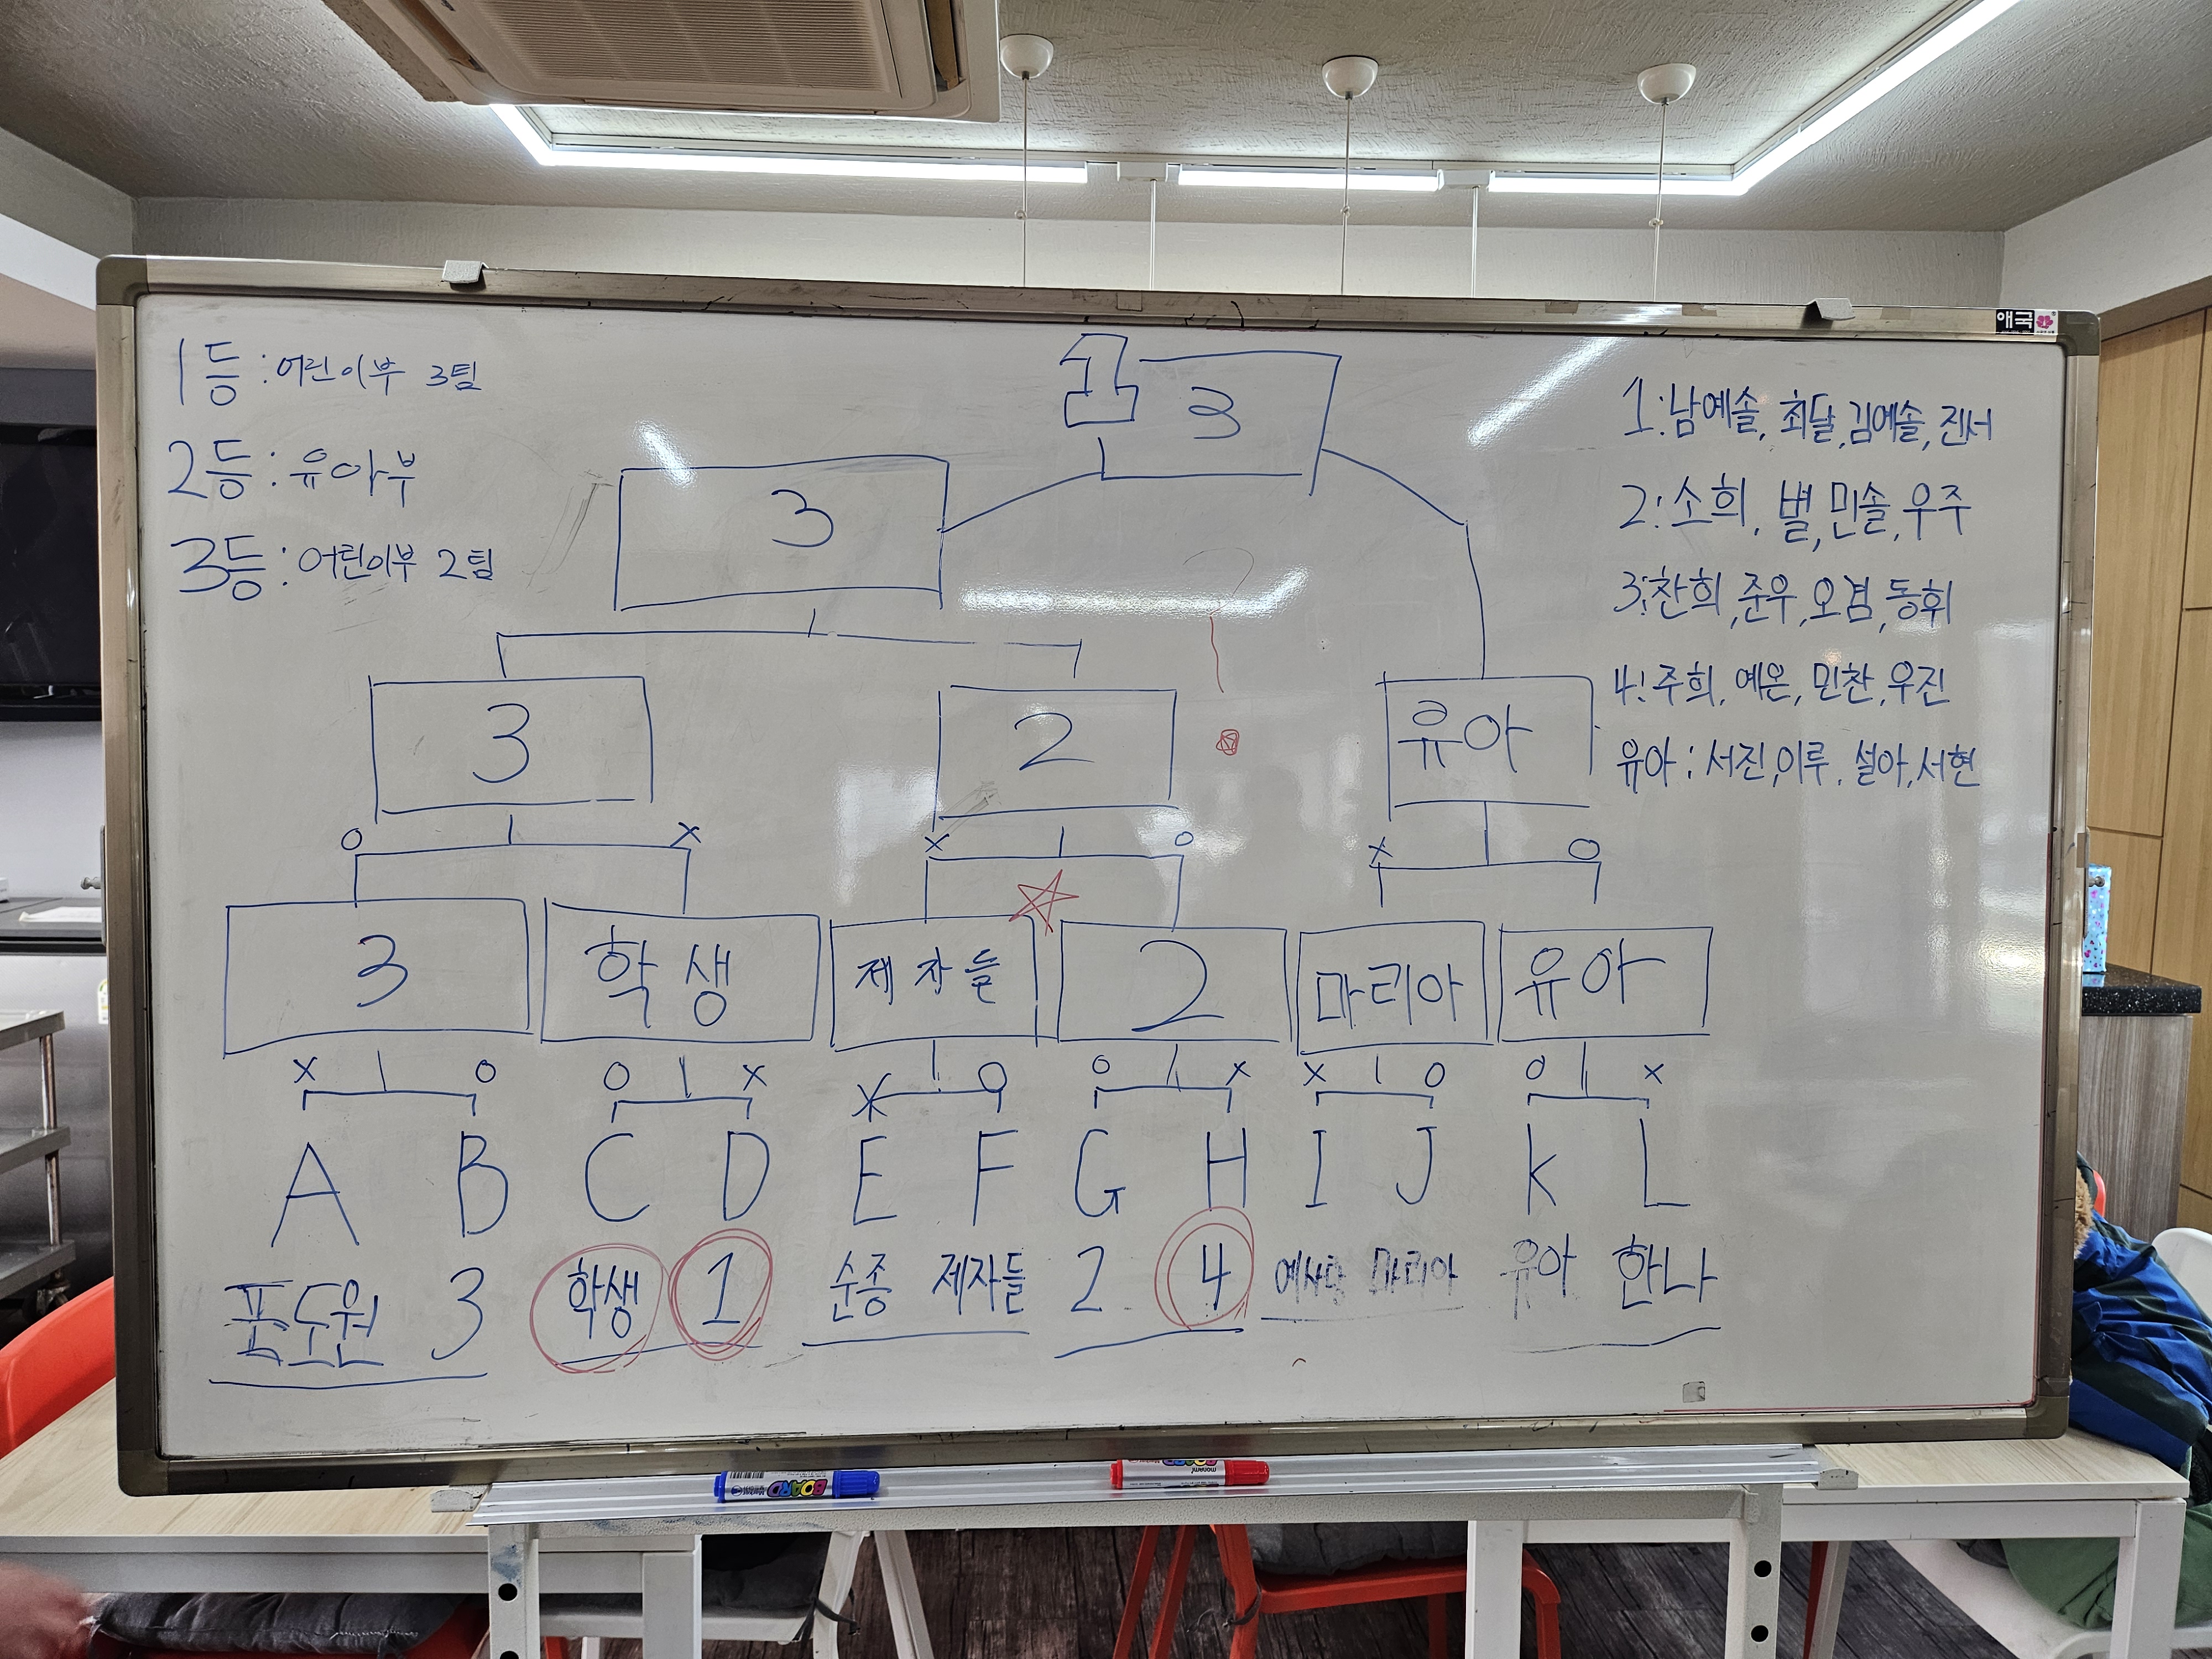 애국
1등 : 어린이부 3팀
2등 : 유아부
3등 : 어린이부 2팀
1 3
3
3 2 유아
O X X O X O
3 학생 제자들 2 마리아 유아
X O O X X O O X X O O X
A B C D E F G H I J K L
포도원 3 학생 1 순종 제자들 2 4 마리아 유아 한나
1: 남예솔, 최달, 김예솔, 진서
2: 소희, 별, 민솔, 우주
3: 찬희, 준우, 오겸, 동휘
4: 주희, 예은, 민찬, 우진
유아 : 서진, 이루, 설아, 서현
BOARD
monami BOARD